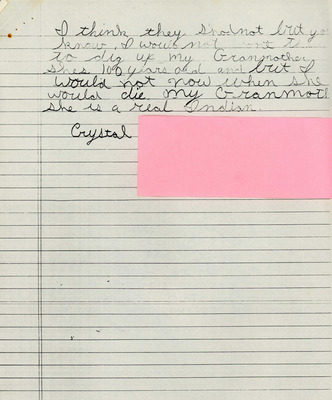 I think they shod not but you
know, I would not to
to dig up my Granmother
shes 100 years old and but I
would not now when she
would die my Granmoth
she is a real Indian.
Crystal